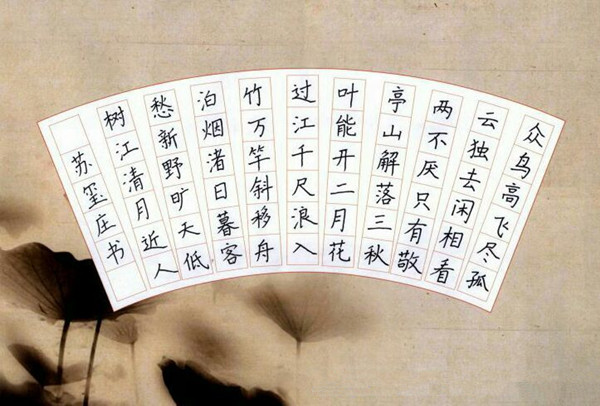 众鸟高飞尽孤
云独去闲相看
两不厌只有敬
亭山解落三秋
叶能开二月花
过江千尺浪入
竹万竿斜移舟
泊烟渚日暮客
愁新野旷天低
树江清月近人
苏玺庄书